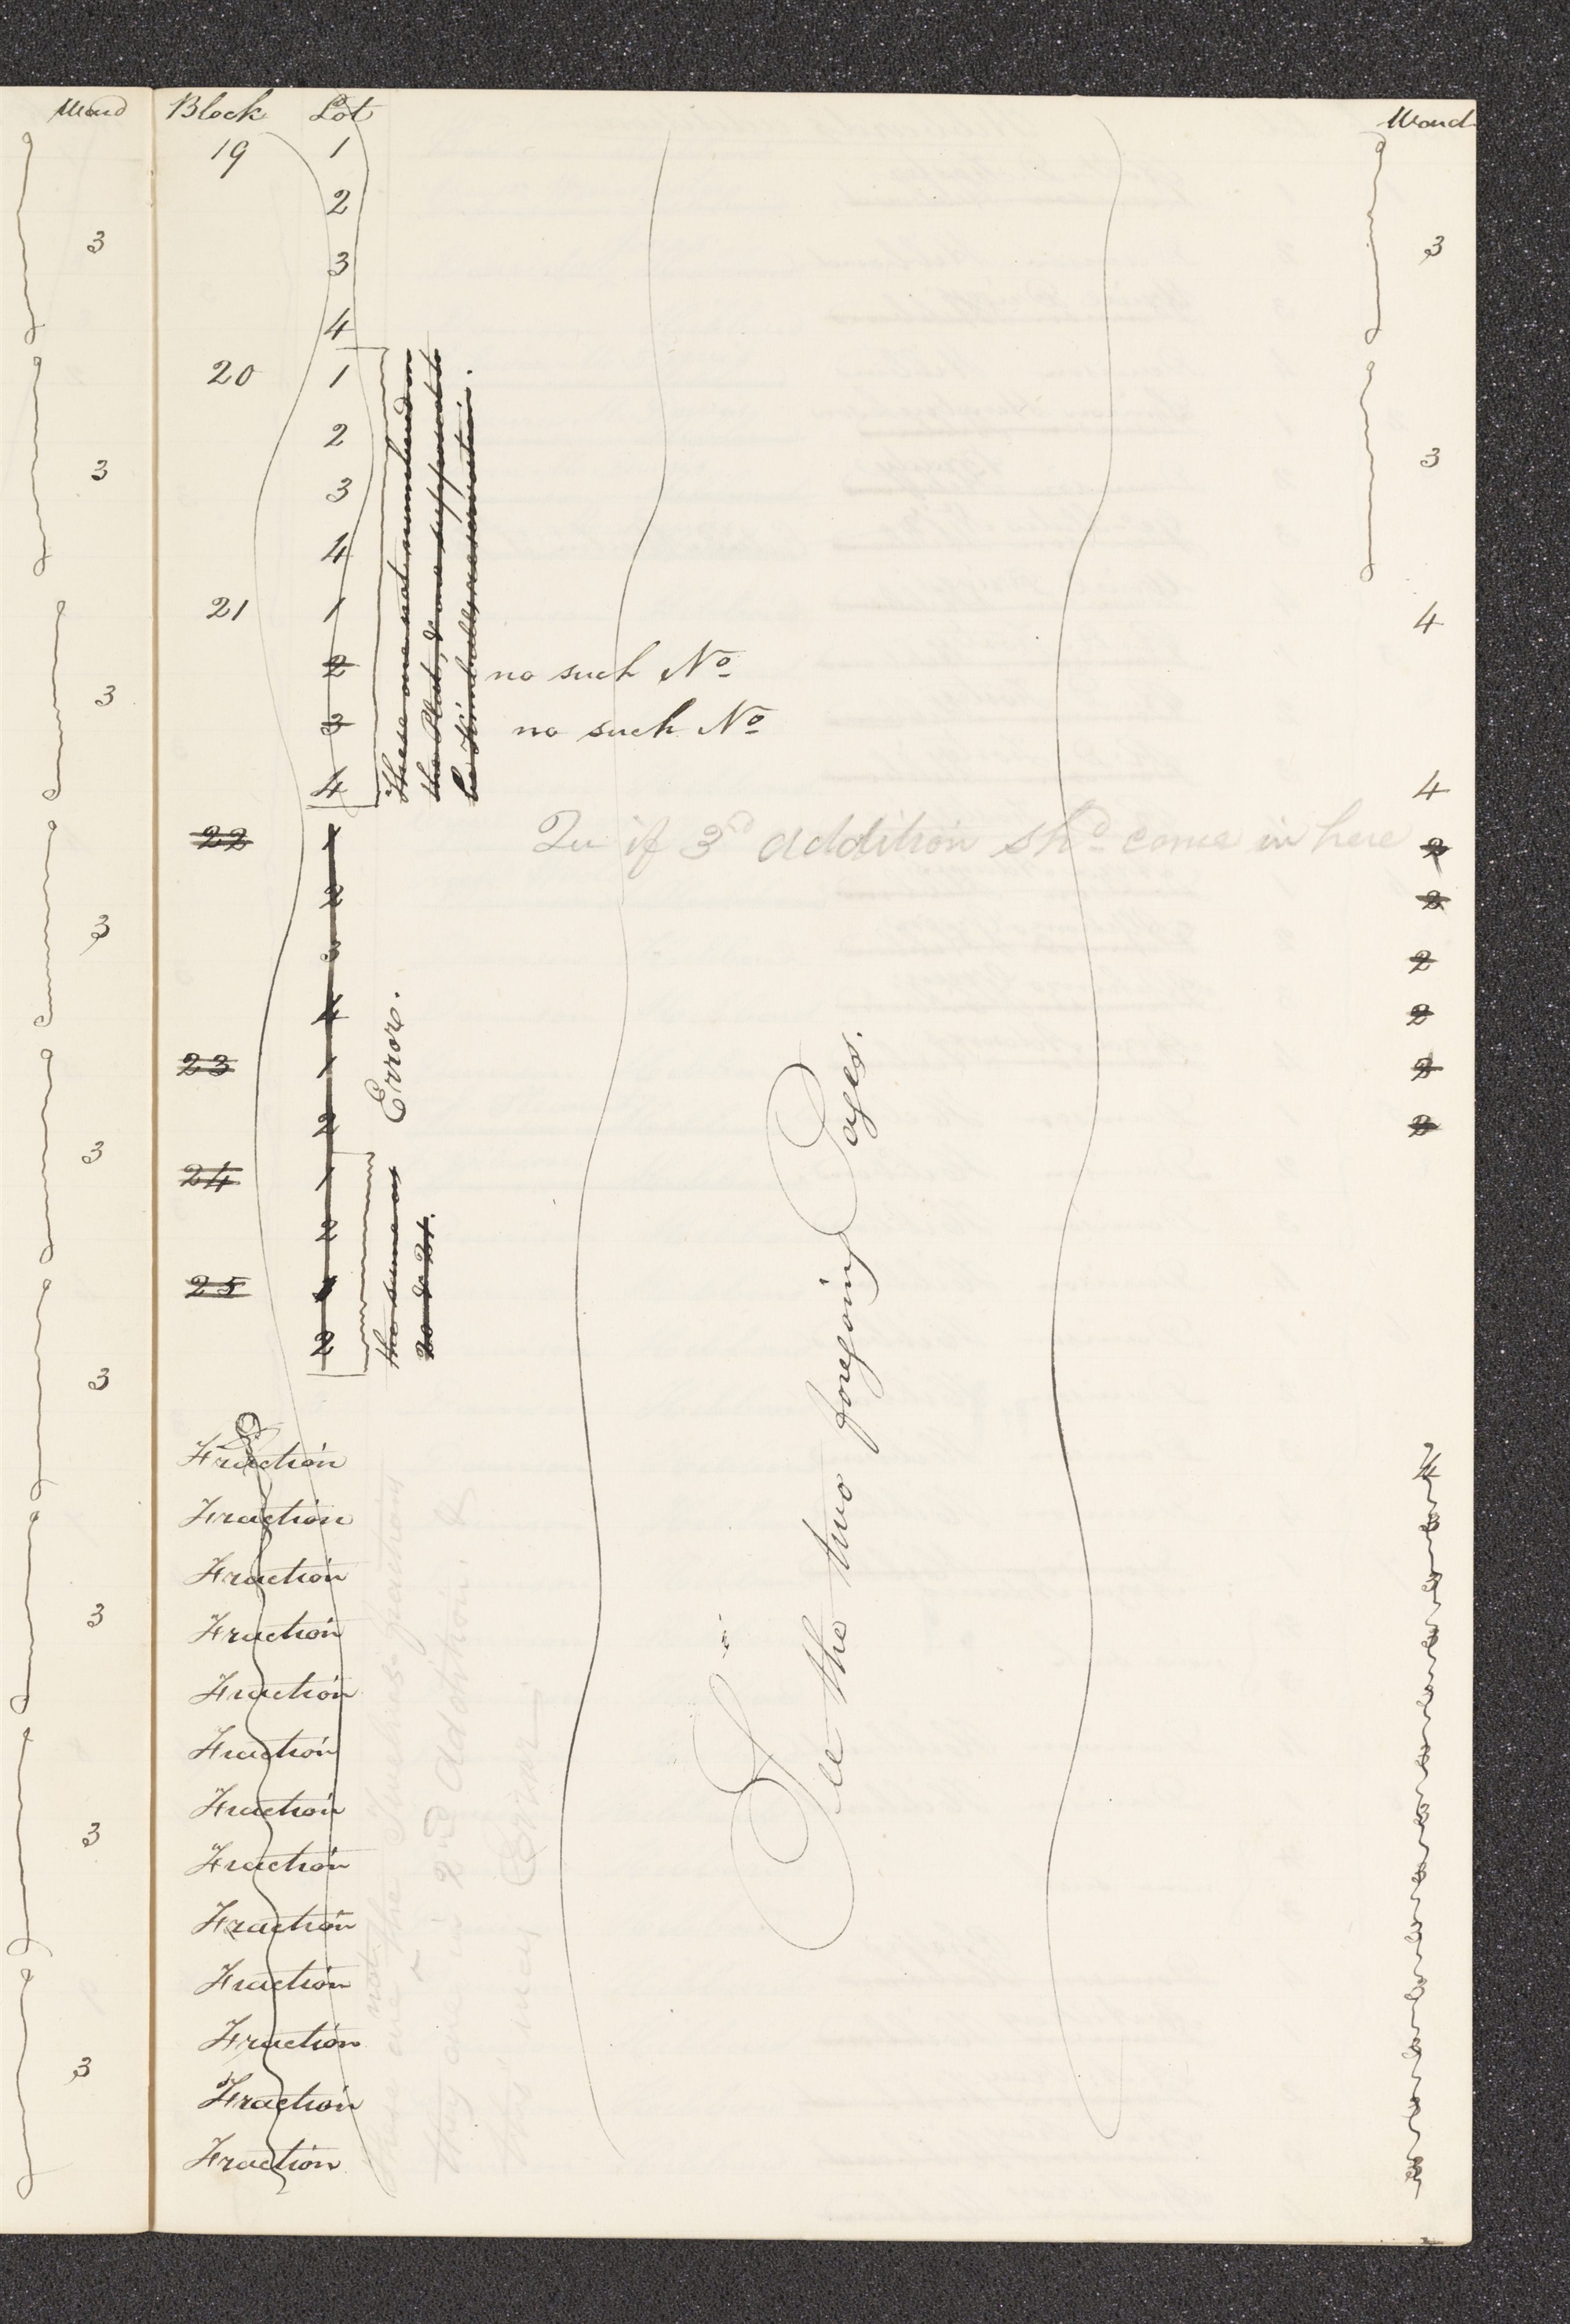 Ward Block Lot Ward
19 1
2
3 3 3
4
20 1
2
3 3 3
4
21 1 4
2 no such No
3 3 no such No
4 4
These are not numbered on
the Plat, & are supposed to
be Kimball's reservation.
22 1 2
Qu if 3rd addition shd come in here
2 2
3 3 2
4 2
23 1 2
2 2
Error.
24 1
3
2
25 1
2
3
the same as
20 & 21.
Fraction 4
Fraction
Fraction
Fraction
3
Fraction
Fraction
Fraction
Fraction
3
Fraction
Fraction
Fraction
Fraction
3
Fraction
These are not the Twelves fractions
they are in 2nd addition. &
this may Error
See the two foregoing Pages.